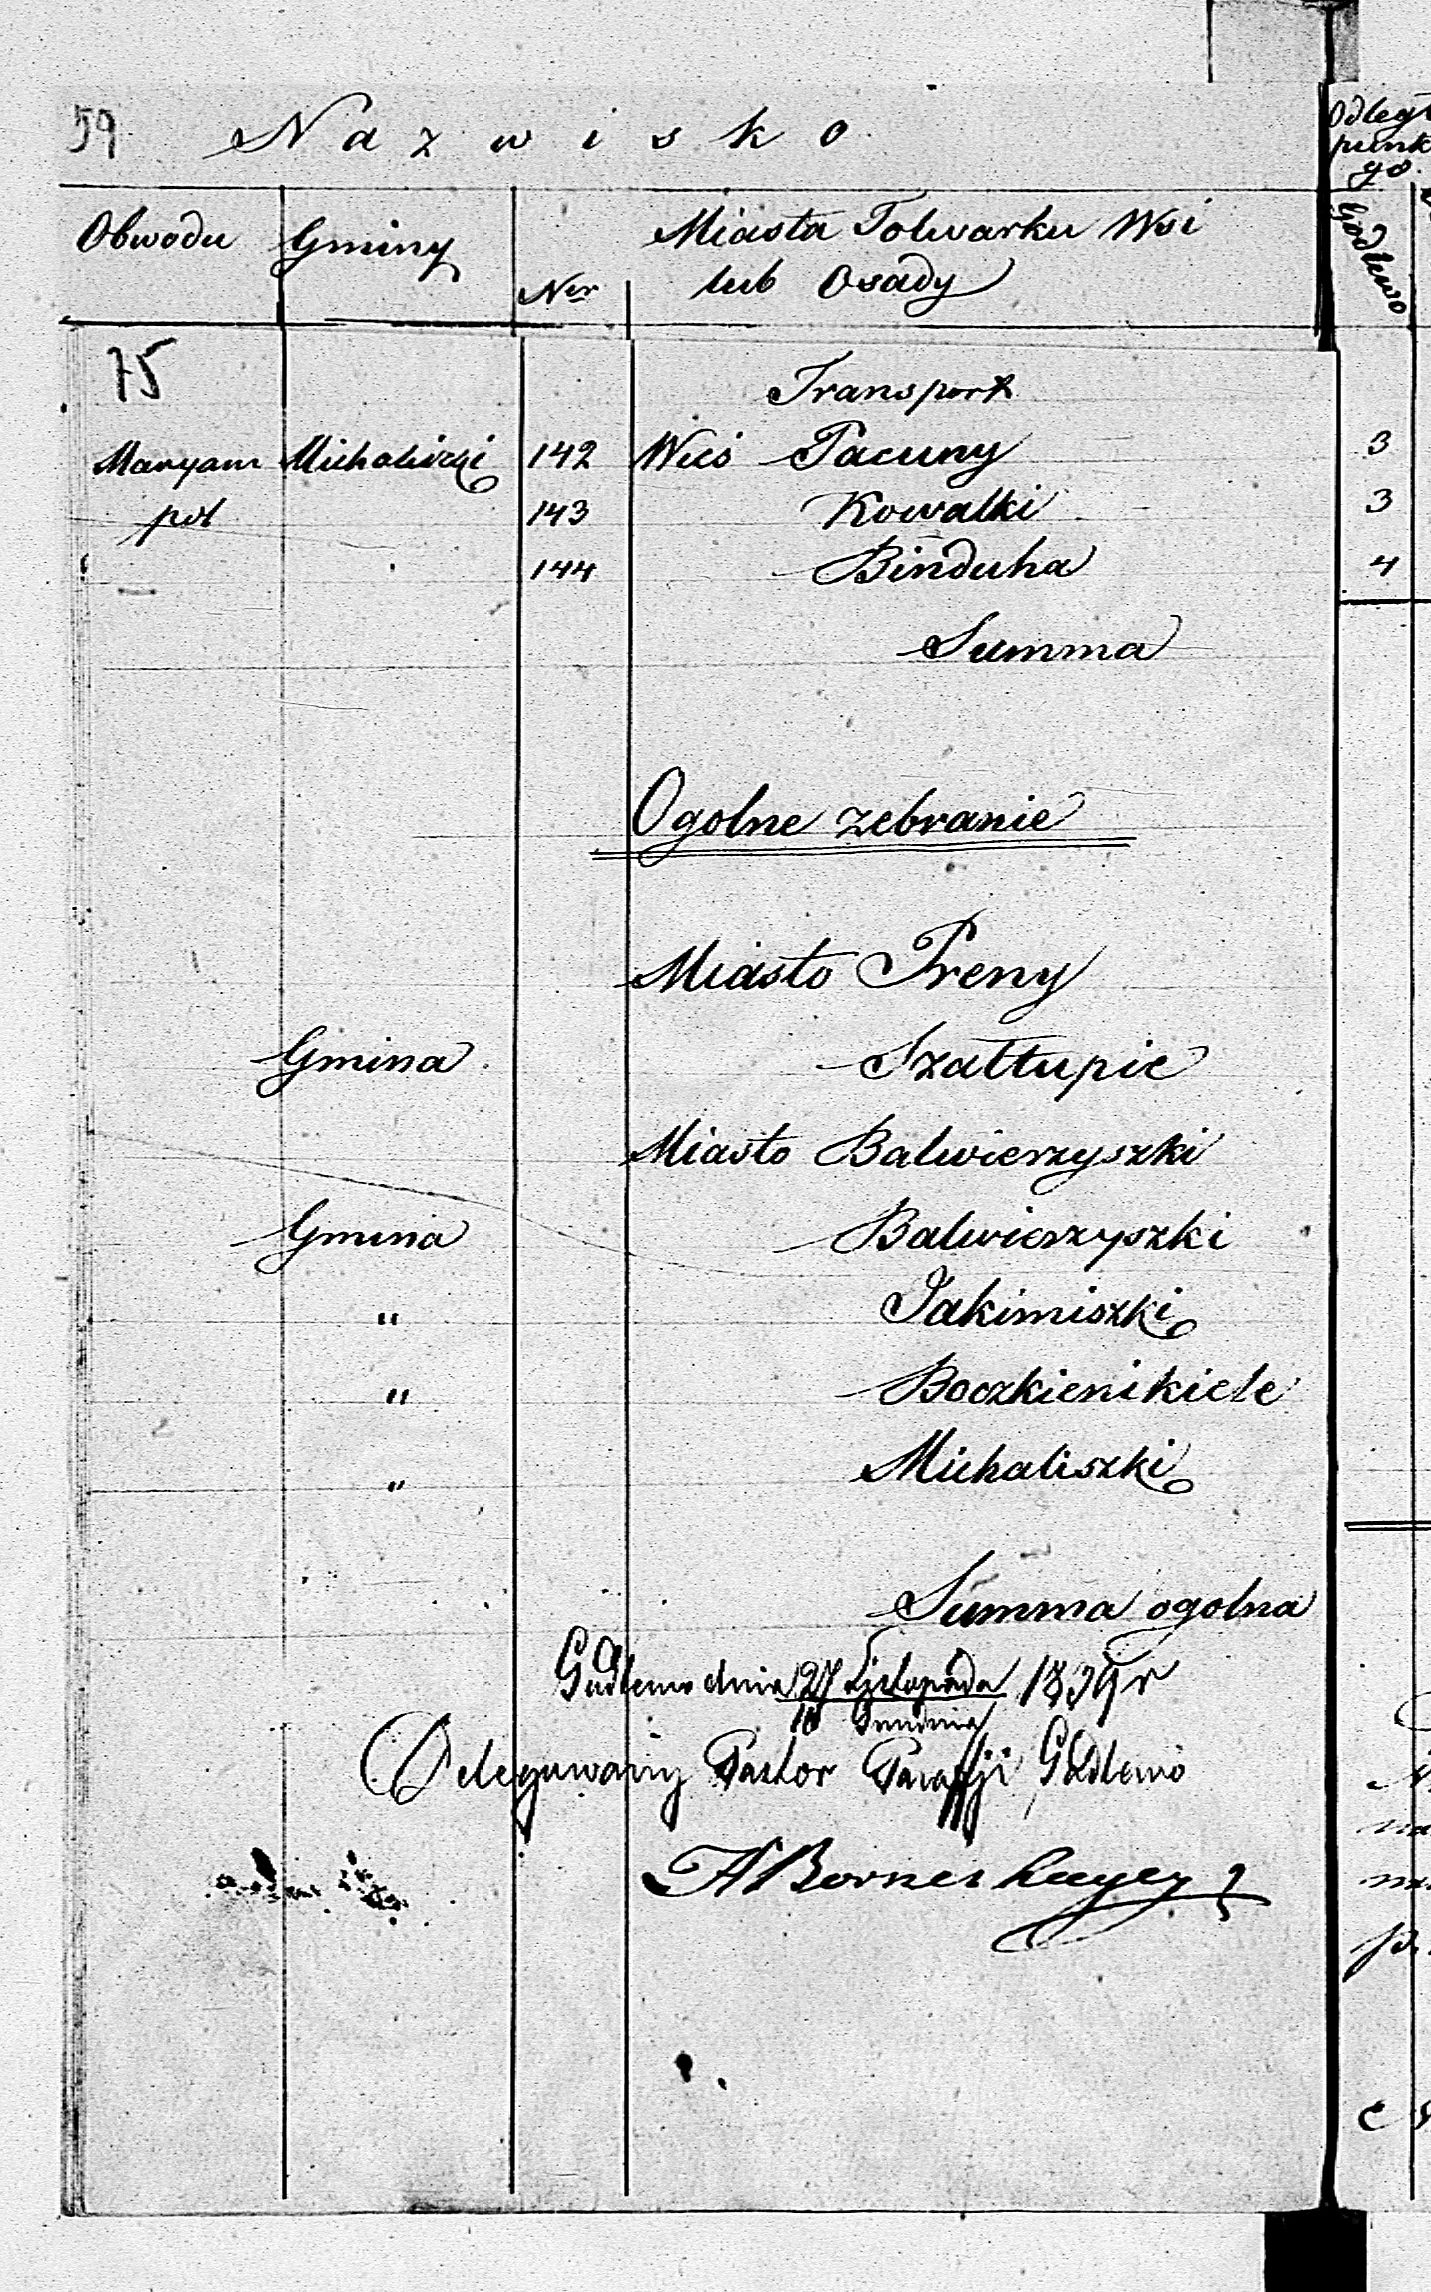 59 Nazwisko
Odległ
punk
go.
Obwodu Gminy Ner Miasta Folwarku Wsi
lub Osady
Godlewo
75
Transport
Maryam Michaliszki 142 Wieś Pacuny 3
pol 143 Kowalki 3
144 Binduha 4
Summa
Ogolne zebranie
Miasto Preny
Gmina Szałtupie
Miasto Balwierzyszki
Gmina Balwierzyszki
" Jakimiszki
" Boczkienikiele
" Michaliszki
Summa ogolna
Godlewo dnia 27 Listopada 1839 r
Grudnia
Delegowany Pastor Paraffji Godlewo